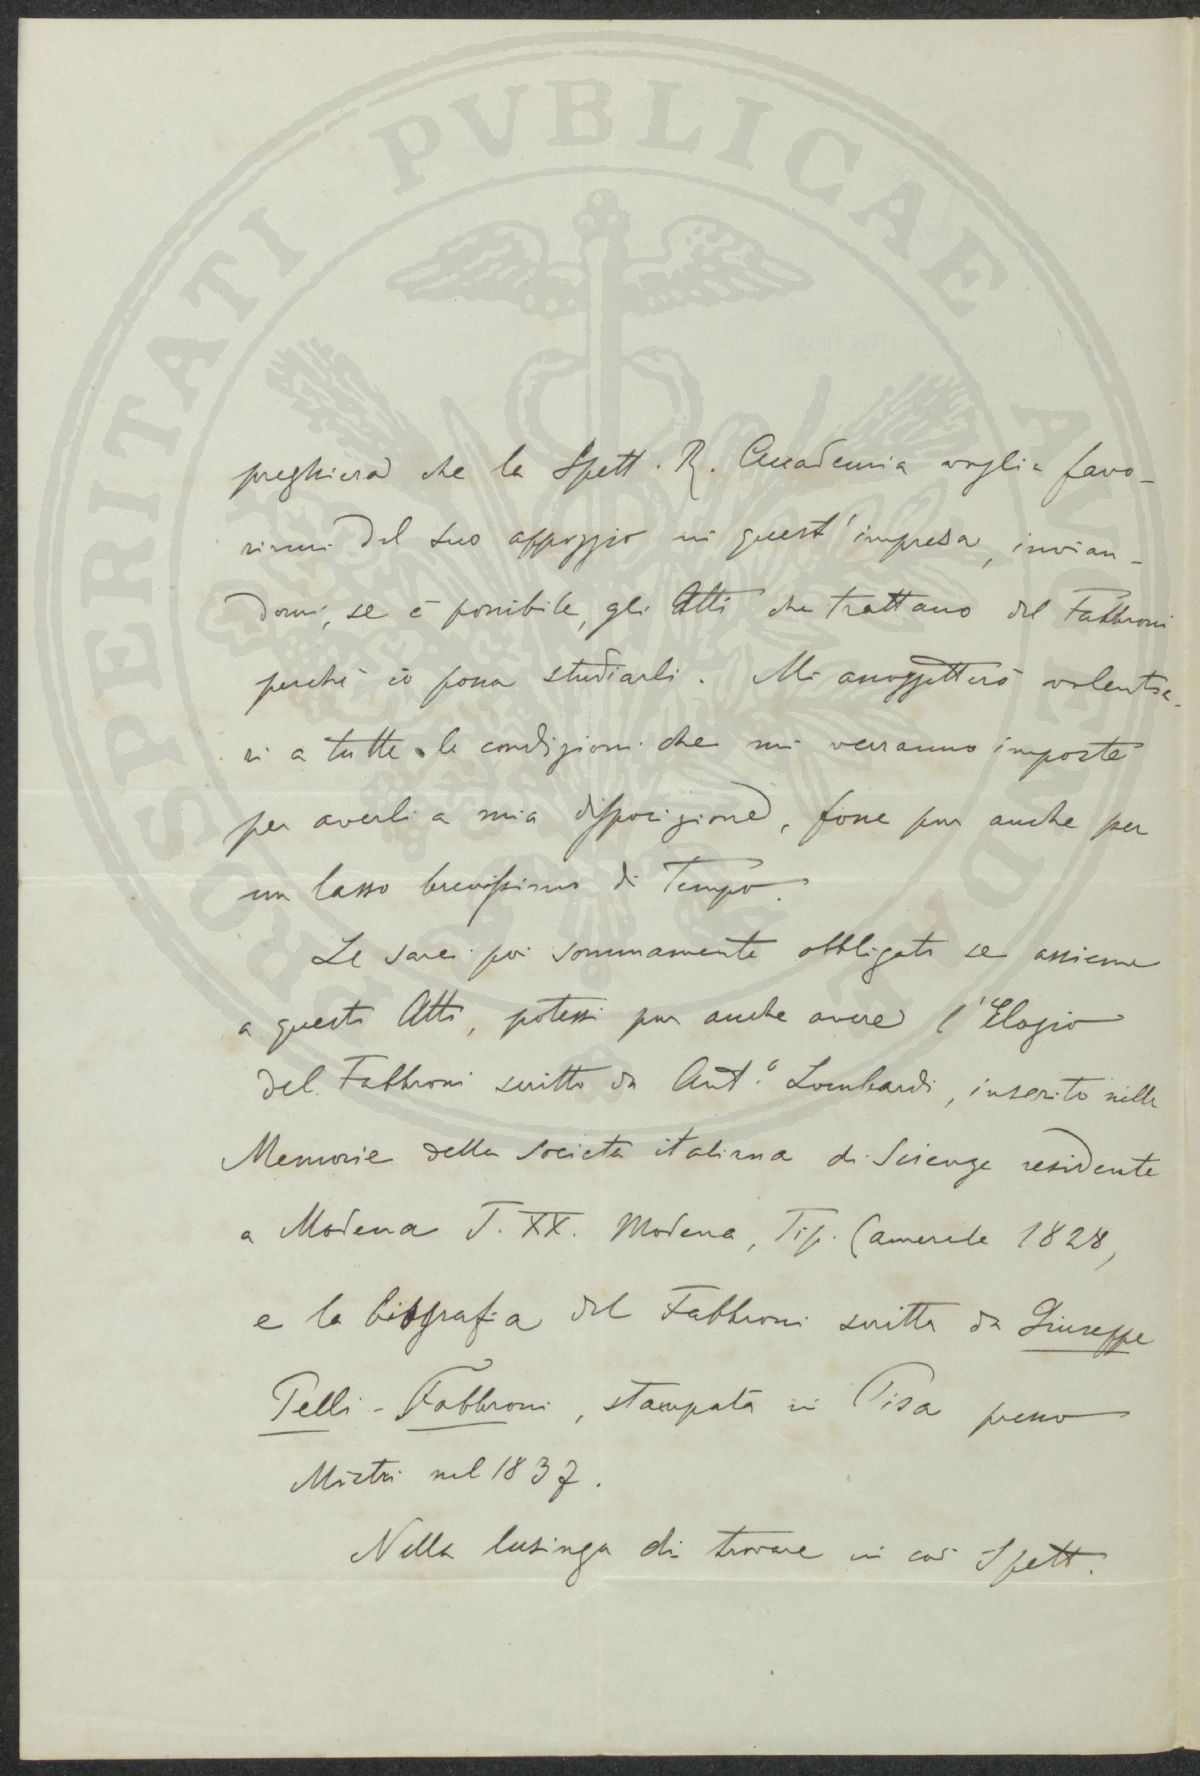 PROSPERITATI PVBLICAE AVGENDAE
preghiera che la Spett. R. Accademia voglia favo-
rirmi del suo appoggio in quest'impresa, invian-
domi, se è possibile, gli Atti che trattano del Fabbroni
perché io possa studiarli. Mi assoggetterò volentie-
ri a tutte le condizioni che mi verranno imposte
per averli a mia disposizione, fosse pur anche per
un lasso brevissimo di tempo.
Le sarei poi sommamente obbligato se assieme
a questi Atti, potessi pur anche avere l'Elogio
del Fabbroni scritto da Ant.° Lombardi, inserito nelle
Memorie della Società italiana di Scienze residente
a Modena T. XX. Modena, Tip. Camerale 1828,
e la biografia del Fabbroni scritta da Giuseppe
Pelli-Fabbroni, stampata in Pisa presso
Nistri nel 1837.
Nella lusinga di trovare in cod. Spett.